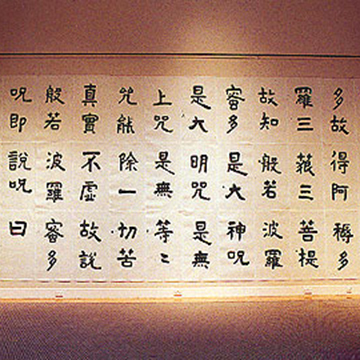 多故得阿耨多
羅三藐三菩提
故知般若波羅
蜜多是大神呪
是大明咒是無
上咒是無等〻
咒能除一切苦
真實不虛故說
般若波羅蜜多
呪即說呪曰